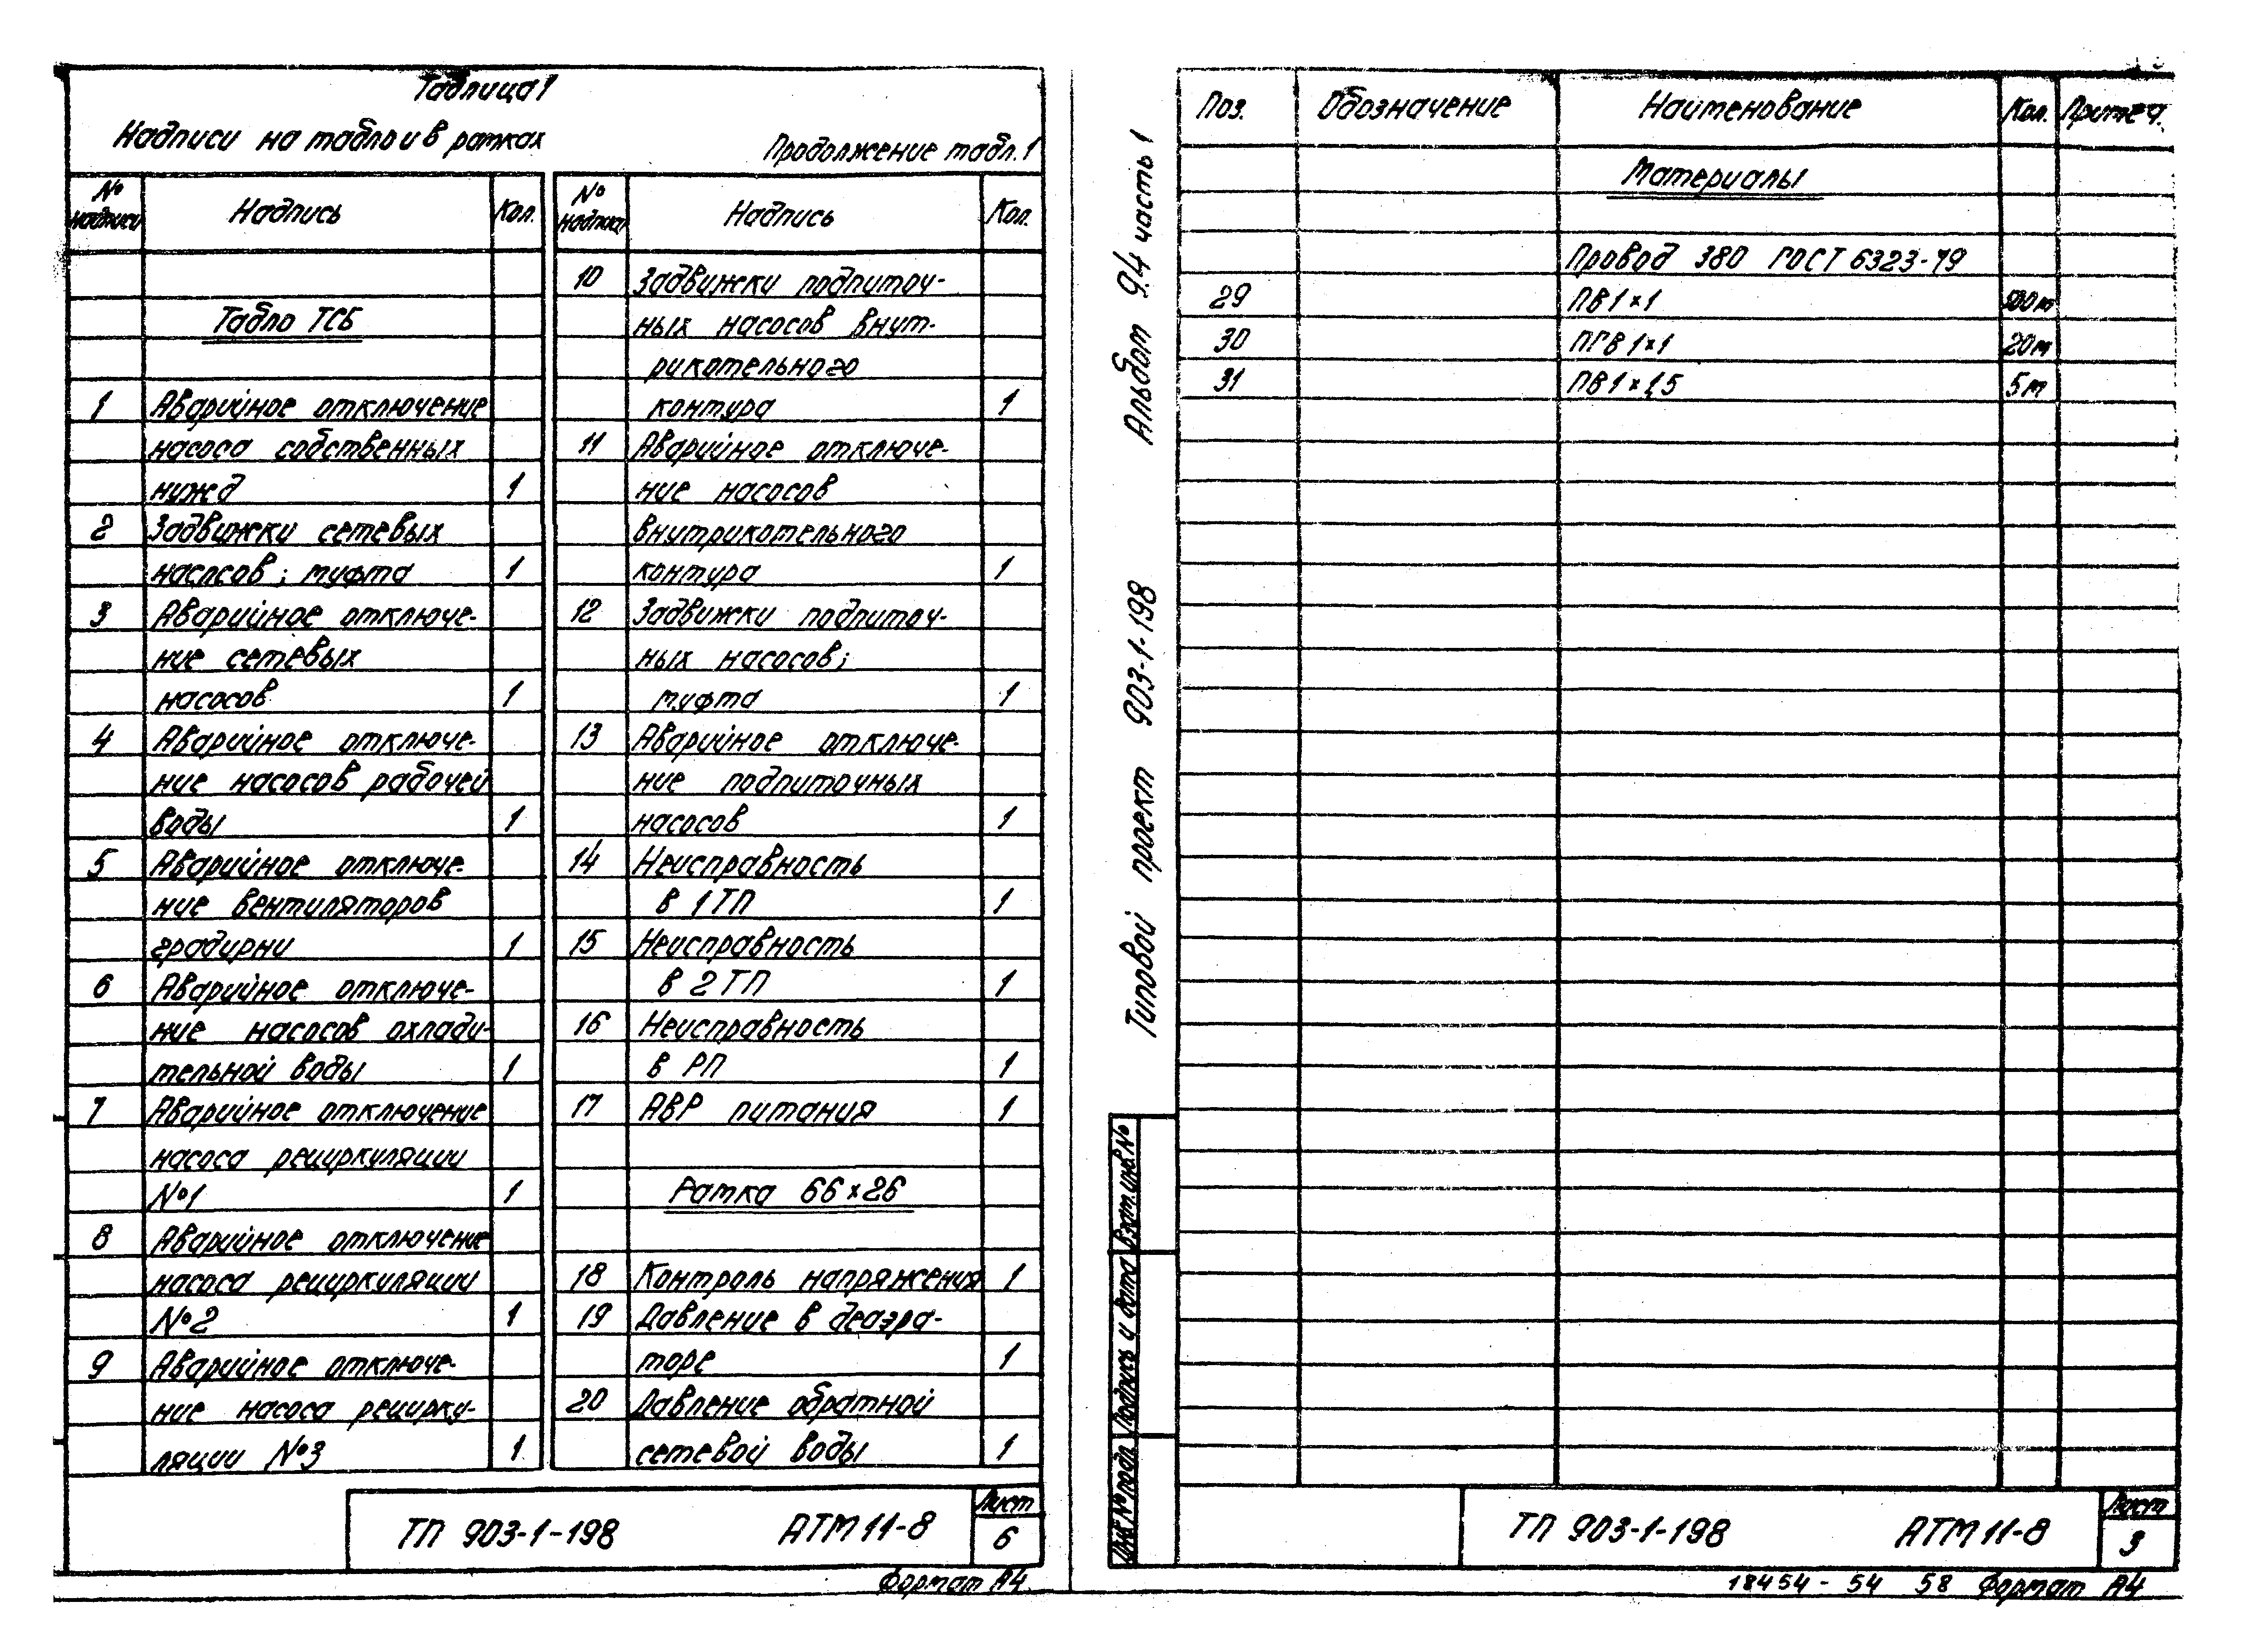 Таблица 1
Надписи на табло и в рамках
Продолжение табл. 1
№ надписи Надпись Кол.
Табло ТСБ
1 Аварийное отключение
насоса собственных
нужд 1
2 Задвижки сетевых
насосов; муфта 1
3 Аварийное отключе-
ние сетевых
насосов 1
4 Аварийное отключе-
ние насосов рабочей
воды 1
5 Аварийное отключе-
ние вентиляторов
градирни 1
6 Аварийное отключе-
ние насосов охлади-
тельной воды 1
7 Аварийное отключение
насоса рециркуляции
№1 1
8 Аварийное отключение
насоса рециркуляции
№2 1
9 Аварийное отключе-
ние насоса рецирку-
ляции №3 1
№ надписи Надпись Кол.
10 Задвижки подпиточ-
ных насосов внут-
рикотельного
контура 1
11 Аварийное отключе-
ние насосов
внутрикотельного
контура 1
12 Задвижки подпиточ-
ных насосов;
муфта 1
13 Аварийное отключе-
ние подпиточных
насосов 1
14 Неисправность
в 1ТП 1
15 Неисправность
в 2ТП 1
16 Неисправность
в РП 1
17 АВР питания 1
Рамка 66×26
18 Контроль напряжения 1
19 Давление в деаэра-
торе 1
20 Давление обратной
сетевой воды 1
ТП 903-1-198 АТМ11-8 Лист
6
Формат А4
Альбом 9.4 часть 1
Типовой проект 903-1-198
Взам.инв.№
Подпись и дата
Инв.№подл.
Поз. Обозначение Наименование Кол. Примеч.
Материалы
Провод 380 ГОСТ 6323-79
29 ПВ1×1 м
30 ПГВ1×1 20м
31 ПВ1×1,5 5м
ТП 903-1-198 АТМ11-8 Лист
3
18454-54 58 Формат А4